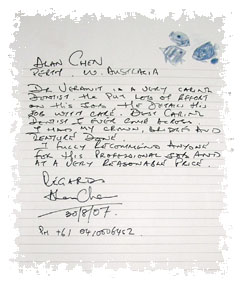 ALAN CHEN
PERTH W. AUSTRALIA
DR VERANIT IS A VERY CARING
DENTIST. HE PUT LOTS OF EFFORT
ON HIS JOB. HE DETAIL HIS
JOB WITH CARE. BEST CARING
DENTIST I EVER COME ACROSS.
I HAD MY CROWN, BRIDGES AND
DENTURE DONE
I FULLY RECOMMEND ANYONE
FOR HIS PROFESSIONAL JOB AND
AT A VERY REASONABLE PRICE.
REGARDS
Alan Chen
30/8/07.
PH +61